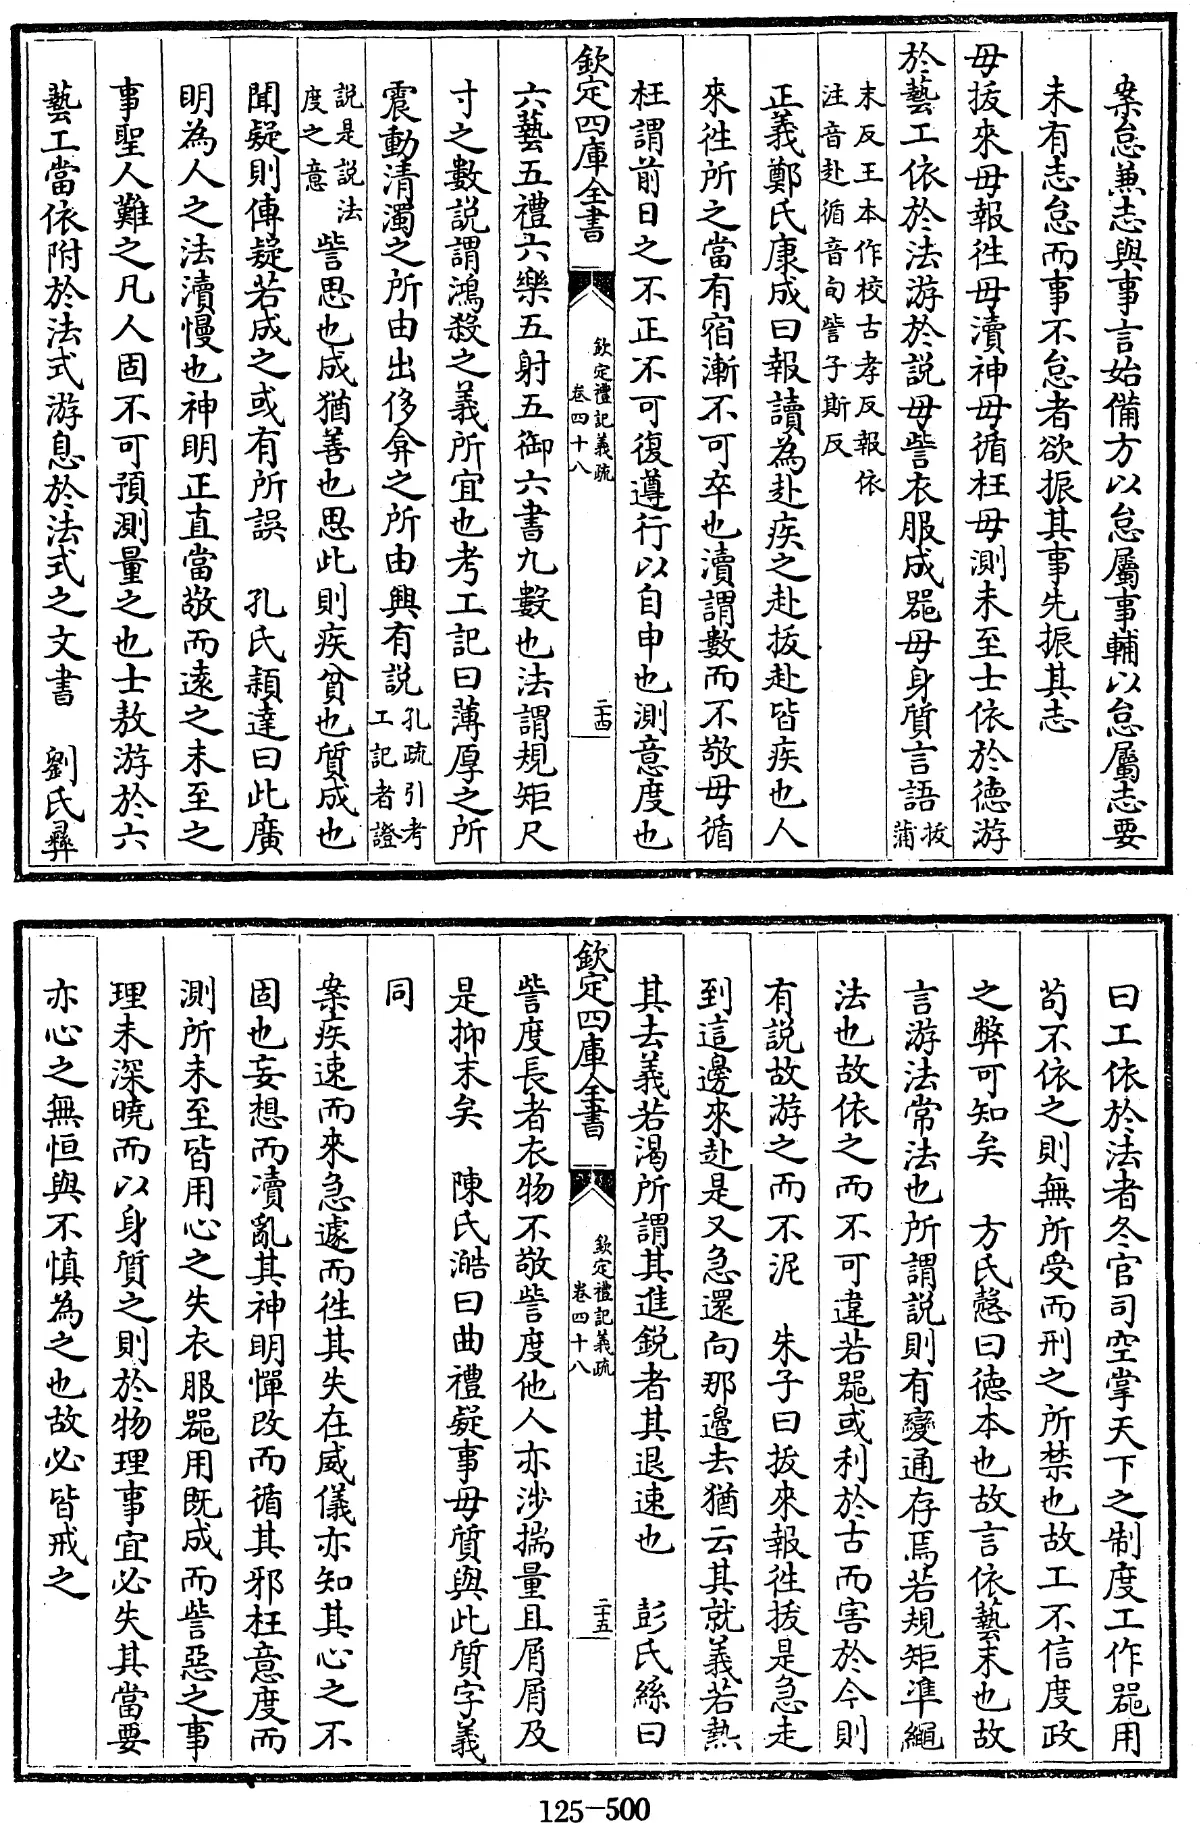 案怠兼志與事言始備方以怠屬事輔以怠屬志要
未有志怠而事不怠者欲振其事先振其志
毋拔來毋報徃毋瀆神毋循枉毋測未至士依於德游
於藝工依於法游於說毋訾衣服成器毋身質言語拔蒲
末反王本作校古孝反報依
注音赴循音旬訾子斯反
正義鄭氏康成曰報讀為赴疾之赴拔赴皆疾也人
來徃所之當有宿漸不可卒也瀆謂數而不敬毋循
枉謂前日之不正不可復遵行以自申也測意度也
欽定四庫全書
欽定禮記義疏
卷四十八
二十四
六藝五禮六樂五射五御六書九數也法謂規矩尺
寸之數說謂鴻殺之義所宜也考工記曰薄厚之所
震動清濁之所由出侈弇之所由興有說孔疏引考
工記者證
說是說法
度之意
訾思也成猶善也思此則疾貧也質成也
聞疑則傳疑若成之或有所誤　孔氏穎達曰此廣
明為人之法瀆慢也神明正直當敬而遠之未至之
事聖人難之凡人固不可預測量之也士敖游於六
藝工當依附於法式游息於法式之文書　劉氏彞
曰工依於法者冬官司空掌天下之制度工作器用
苟不依之則無所受而刑之所禁也故工不信度政
之弊可知矣　方氏慤曰德本也故言依藝末也故
言游法常法也所謂說則有變通存焉若規矩準繩
法也故依之而不可違若器或利於古而害於今則
有說故游之而不泥　朱子曰拔來報徃拔是急走
到這邊來赴是又急還向那邊去猶云其就義若熱
其去義若渴所謂其進銳者其退速也　彭氏絲曰
欽定四庫全書
欽定禮記義疏
卷四十八
二十五
訾度長者衣物不敬訾度他人亦涉揣量且屑屑及
是抑末矣　陳氏澔曰曲禮疑事毋質與此質字義
同
案疾速而來急遽而徃其失在威儀亦知其心之不
固也妄想而瀆亂其神明憚改而循其邪枉意度而
測所未至皆用心之失衣服器用既成而訾惡之事
理未深曉而以身質之則於物理事宜必失其當要
亦心之無恒與不慎為之也故必皆戒之
125-500